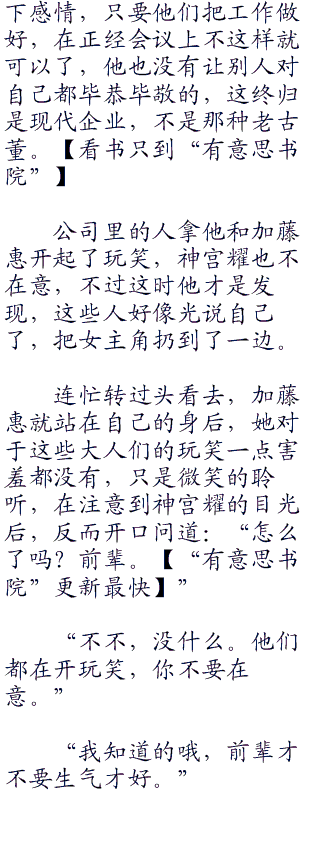 下感情，只要他们把工作做
好，在正经会议上不这样就
可以了，他也没有让别人对
自己都毕恭毕敬的，这终归
是现代企业，不是那种老古
董。【看书只到“有意思书
院”】
公司里的人拿他和加藤
惠开起了玩笑，神宫耀也不
在意，不过这时他才是发
现，这些人好像光说自己
了，把女主角扔到了一边。
连忙转过头看去，加藤
惠就站在自己的身后，她对
于这些大人们的玩笑一点害
羞都没有，只是微笑的聆
听，在注意到神宫耀的目光
后，反而开口问道：“怎么
了吗？前辈。【“有意思书
院”更新最快】”
“不不，没什么。他们
都在开玩笑，你不要在
意。”
“我知道的哦，前辈才
不要生气才好。”